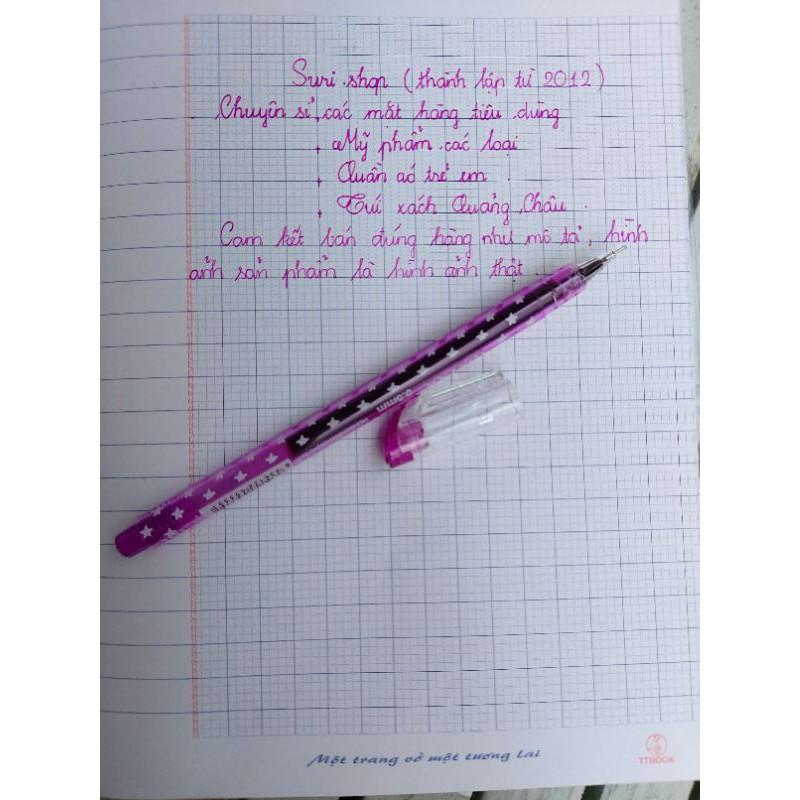 Suri shop (thành lập từ 2012)
Chuyên sỉ các mặt hàng tiêu dùng
+ Mỹ phẩm các loại
+ Quần áo trẻ em.
+ Túi xách Quảng Châu.
Cam kết bán đúng hàng như mô tả, hình
ảnh sản phẩm là hình ảnh thật
0.5MM
Một trang vở một tương lai
TTBOOK